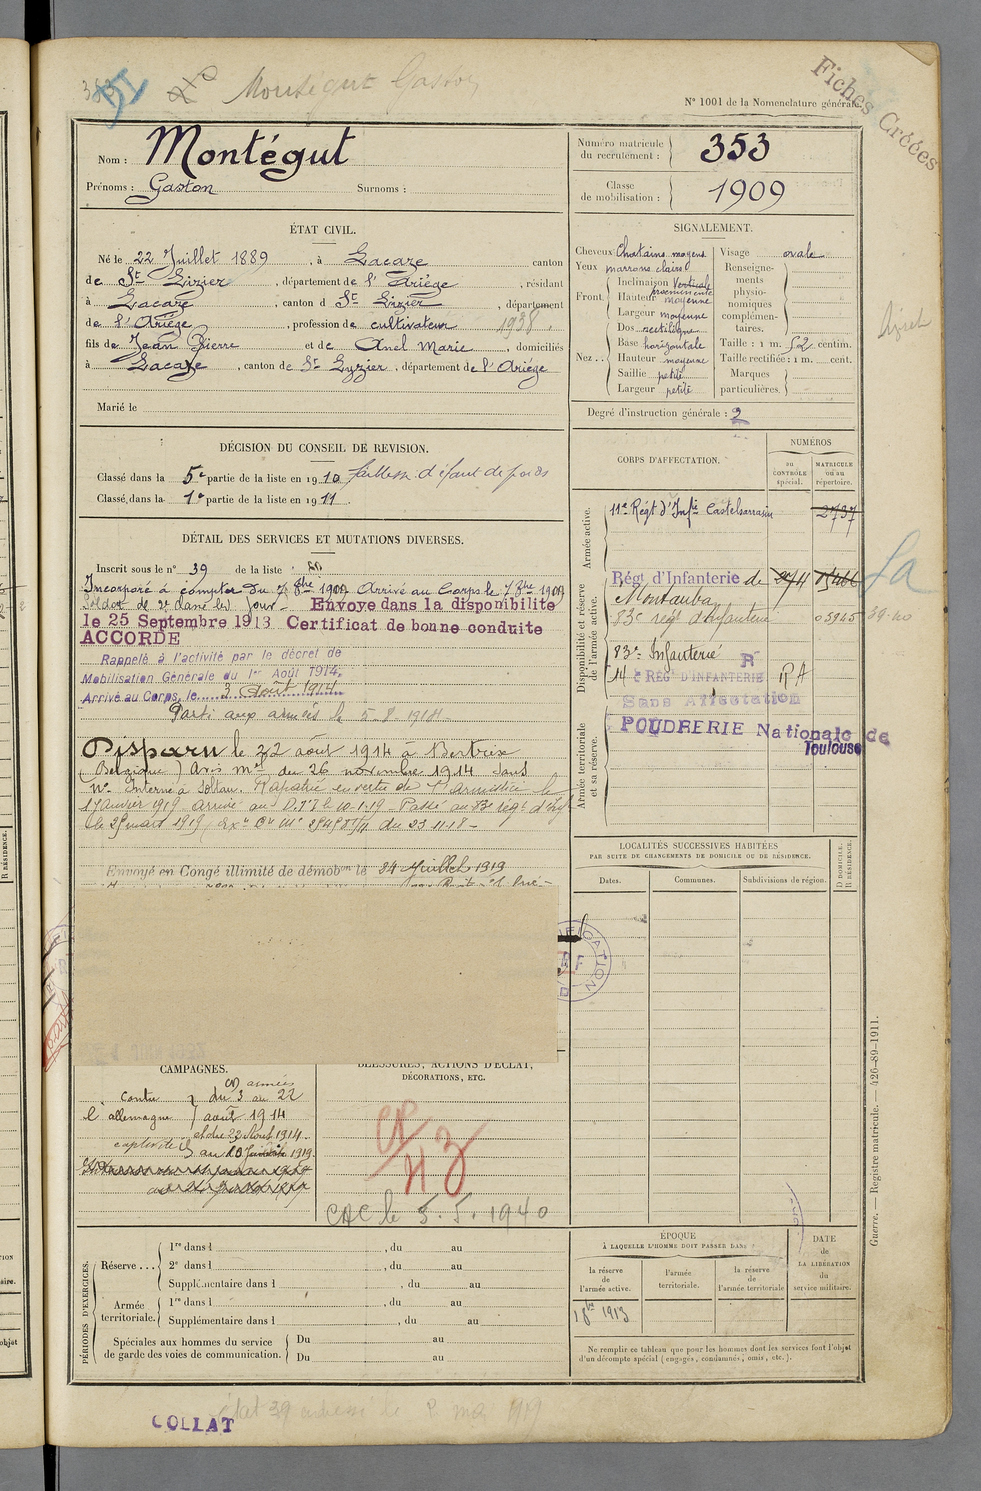 353
Montégut Gaston
Fiches Créées
N° 1001 de la Nomenclature générale.
Nom : Montégut
Prénoms : Gaston Surnoms :
Numéro matricule du recrutement : 353
Classe de mobilisation : 1909
ÉTAT CIVIL.
Né le 22 Juillet 1889, à Lacaze canton
de St Lizier, département de l'Ariège, résidant
à Lacaze, canton d St Lizier, département
de l'Ariège, profession de cultivateur 1938
fils de Jean Pierre et de Anel Marie, domiciliés
à Lacaze, canton de St Lyzier, département de l'Ariège
Marié le
SIGNALEMENT.
Cheveux Chatains moyens
Yeux marrons clairs
Front. Inclinaison Verticale proéminente
Hauteur moyenne
Largeur moyenne
Nez... Dos rectiligne
Base horizontale
Hauteur moyenne
Saillie petite
Largeur petite
Visage ovale
Renseignements physionomiques complémentaires.
Taille : 1 m. 52 centim.
Taille rectifiée : 1 m. cent.
Marques particulières.
Degré d'instruction générale : 2
DÉCISION DU CONSEIL DE REVISION.
Classé dans la 5e partie de la liste en 1910 faiblesse défaut de poids
Classé dans la 1e partie de la liste en 1911.
DÉTAIL DES SERVICES ET MUTATIONS DIVERSES.
Inscrit sous le n° 39 de la liste
Incorporé à compter du Arrivé au Corps le
Soldat de 2e classe les jour Envoyé dans la disponibilité
le 25 Septembre 1913 Certificat de bonne conduite
ACCORDÉ
Rappelé à l'activité par le décret de
Mobilisation Générale du 1er Août 1914.
Arrivé au Corps, le 3 Août 1914
Parti aux armées le 5-8-1914
Disparu le 22 août 1914 à Bertrix
(Belgique) Avis mel du 26 novembre 1914 dans
Interné à Soltau. Rapatrié en vertu de l'armistice le
17 janvier 1919 arrivé au le 10-1-19 Passé au 83e régt d'Inf
le 29 mars 1919 du 23-11-18
Envoyé en Congé illimité de démobon le 24 Juillet 1919
CORPS D'AFFECTATION.
NUMÉROS
au CONTRÔLE spécial.
MATRICULE ou au répertoire.
Armée active.
11e Régt d'Infie Castelsarrasin 2737
Disponibilité et réserve de l'armée active.
Régt d'Infanterie de
Montauba
83e régt d'Infanterie 05945
83e Infanterie
14e RÉGt D'INFANTERIE RA
Sans Affectation
Armée territoriale et sa réserve.
POUDRERIE Nationale de
Toulouse
LOCALITÉS SUCCESSIVES HABITÉES
PAR SUITE DE CHANGEMENTS DE DOMICILE OU DE RÉSIDENCE.
Dates.
Communes.
Subdivisions de région.
D DOMICILE.
R RÉSIDENCE.
CAMPAGNES.
Contre l'allemagne
aux armées
du 3 au 22
août 1914
captivité
et du 23 Août 1914
au 10 1919
BLESSURES, ACTIONS D'ÉCLAT,
DÉCORATIONS, ETC.
CAC le 5.5.1940
PÉRIODES D'EXERCICES.
Réserve... 1re dans l , du au
2e dans l , du au
Supplémentaire dans l , du au
Armée territoriale. 1re dans l , du au
Supplémentaire dans l , du au
Spéciales aux hommes du service de garde des voies de communication. Du au
Du au
ÉPOQUE
À LAQUELLE L'HOMME DOIT PASSER DANS :
la réserve de l'armée active.
l'armée territoriale.
la réserve de l'armée territoriale
DATE de LA LIBÉRATION du service militaire.
1 8bre 1913
Ne remplir ce tableau que pour les hommes dont les services font l'objet
d'un décompte spécial (engagés, condamnés, omis, etc.).
Guerre. — Registre matricule. — 426-89-1911.
COLLAT